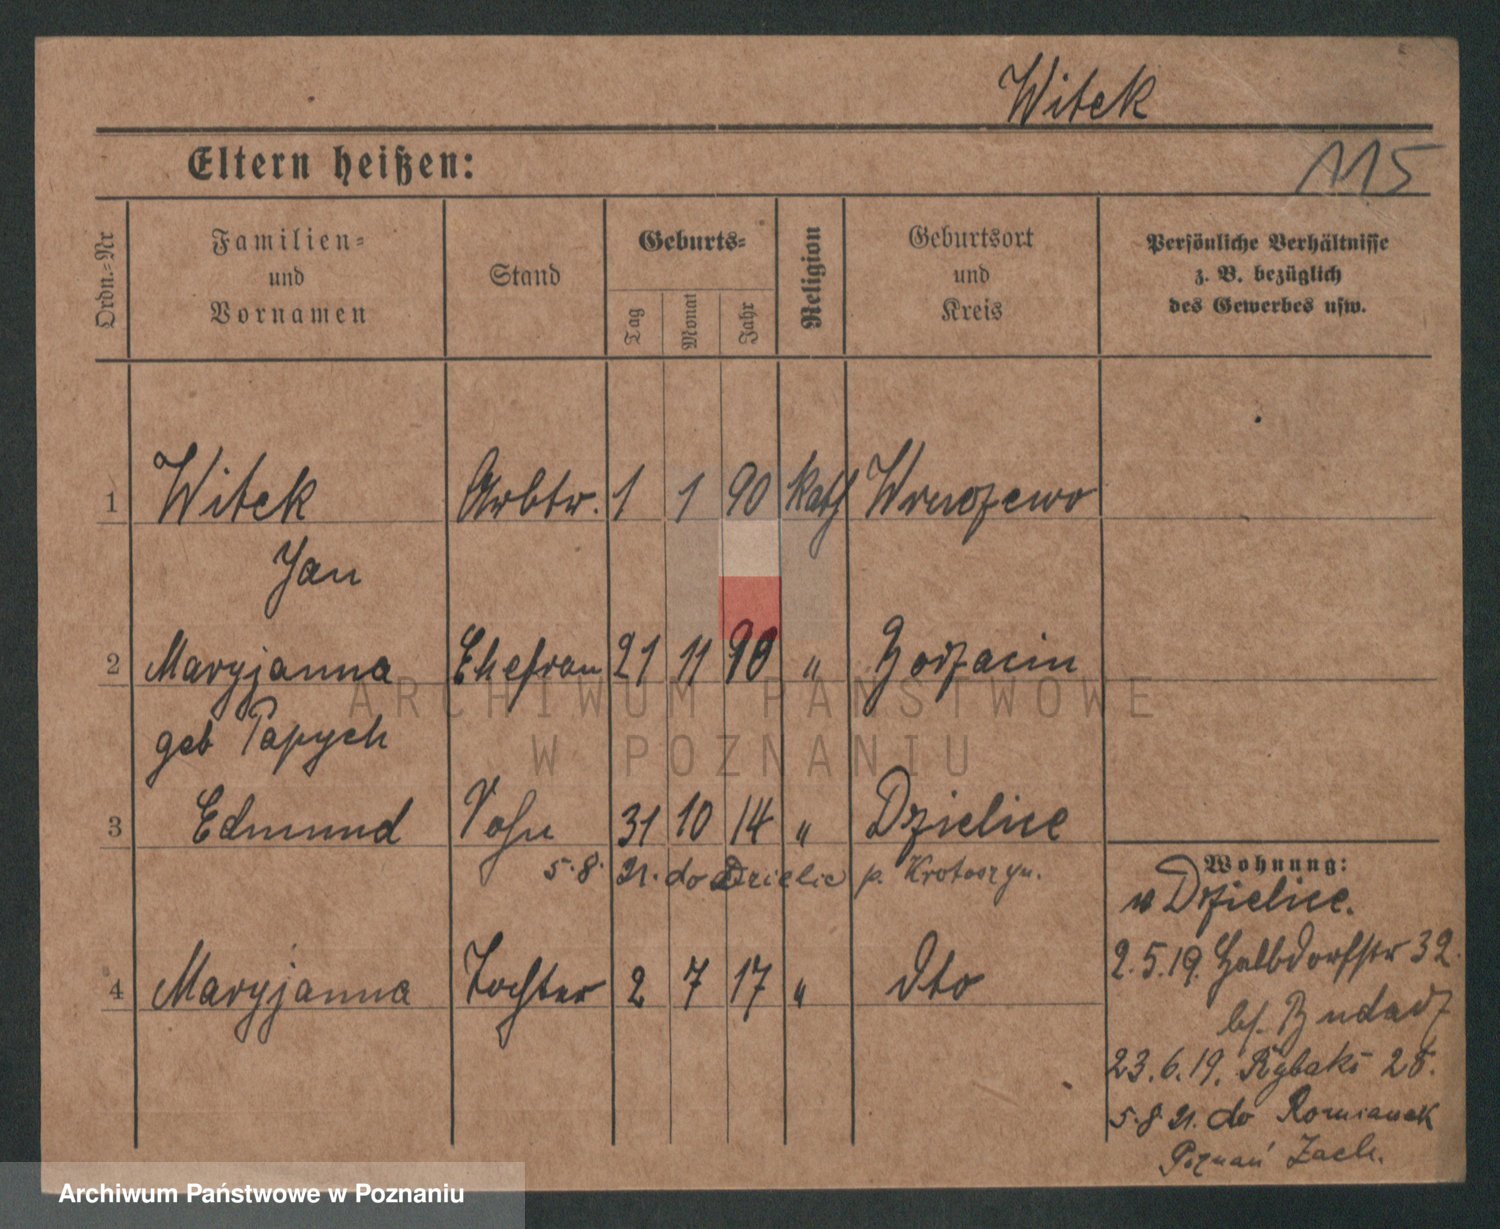 Witek
115
Eltern heißen:
Ordn.=Nr
Familien=
und
Vornamen
Stand
Geburts=
Tag
Monat
Jahr
Religion
Geburtsort
und
Kreis
Persönliche Verhältnisse
z. B. bezüglich
des Gewerbes usw.
1 Witek Arbtr. 1 1 90 kath
Jan
2 Maryjanna Ehefrau 21 11 90 "
geb Papych
3 Edmund Sohn 31 10 14 " Dzielice
5.8. 21. do Dzielic p. Krotoszyn.
4 Maryjanna Tochter 2 7 17 " dto
Wohnung:
w Dzielice.
2.5.19. Halbdorfstr 32.
bf.
23.6.19. Rybaki 28.
5.8 21. do Romianek
Poznań Zach.
ARCHIWUM PAŃSTWOWE
W POZNANIU
Archiwum Państwowe w Poznaniu